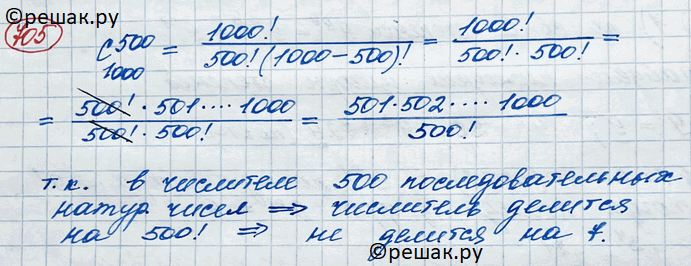 ©решак.ру
705 C 500 1000 = 1000! / 500!(1000-500)! = 1000! / 500! · 500! =
= 500! · 501 · ···· 1000 / 500! · 500! = 501 · 502 · ···· 1000 / 500!
т.к. в числителе 500 последовательных
натур. чисел ⟹ числитель делится
на 500! ⟹ не делится на 7.
©решак.ру